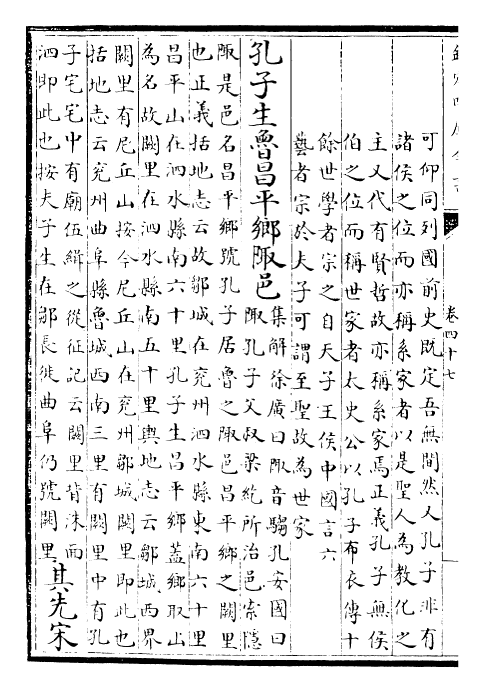 欽定四庫全書
卷四十七
可仰同列國前史既定吾無間然又孔子非有
諸侯之位而亦稱系家者以是聖人為教化之
主又代有賢哲故亦稱系家焉正義孔子無侯
伯之位而稱世家者太史公以孔子布衣傳十
餘世學者宗之自天子王侯中國言六
藝者宗於夫子可謂至聖故為世家
孔子生魯昌平鄉陬邑
集解徐廣曰陬音騶孔安國曰
陬孔子父叔梁紇所治邑索隱
陬是邑名昌平鄉號孔子居魯之陬邑昌平鄉之闕里
也正義括地志云故鄒城在兖州泗水縣東南六十里
昌平山在泗水縣南六十里孔子生昌平鄉蓋鄉取山
為名故闕里在泗水縣南五十里輿地志云鄒城西界
闕里有尼丘山按今尼丘山在兖州鄒城闕里即此也
括地志云兖州曲阜縣魯城西南三里有闕里中有孔
子宅宅中有廟伍緝之從征記云闕里背洙面
泗即此也按夫子生在鄒長徙曲阜仍號闕里
其先宋